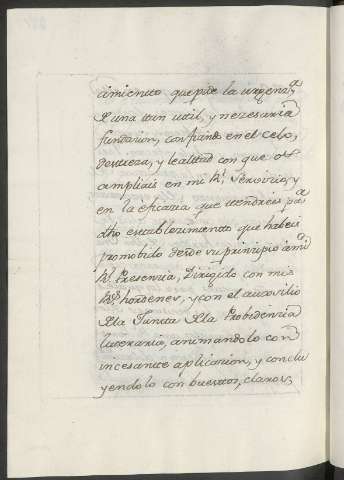 cimiento que pide la urgenz.ª
de una tan util, y nezesaria
fundazion, confiando en el celo,
destreza, y lealttad con que os
ampliais en mi R.l Servizio, y
en la eficazia que ttendreis p.ª
dho establezimiento que habeis
promobido desde su prinzipio à mi
R.l Presenzia, Dirigido con mis
R.s hordenes, y con el auxsilio
de la Juntta de la Probidenzia
lutteraria, animandolo con
incesante aplicazion, y conclu
yendolo con buestros, claros,